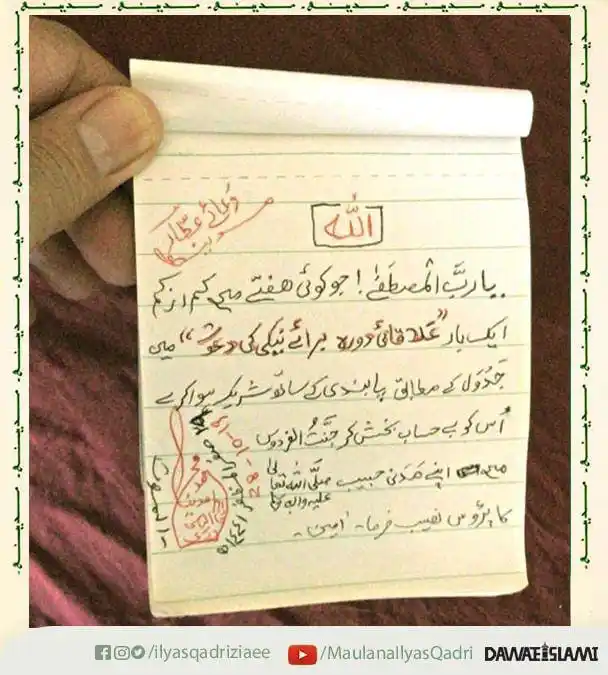 اللہ
دعائے عطار
یا ربَّ المصطفٰے! جو کوئی ھفتے میں کم از کم
ایک بار "عَلاقائی دورہ برائے نیکی کی دعوت" میں
جَدْوَل کے مطابق پابندی کے ساتھ شریک ہوا کرے
اُس کو بے حساب بخش کر جنَّتُ الفردوس
میں اپنے مَدَنی حبیب صلَّی اللہ تعالیٰ علیہ واٰلہٖ وسلَّم
کا پڑوس نصیب فرما۔ اٰمین۔
١٤٤١ھ
28-10-19
/ilyasqadriziaee
/MaulanaIlyasQadri
DAWATEISLAMI